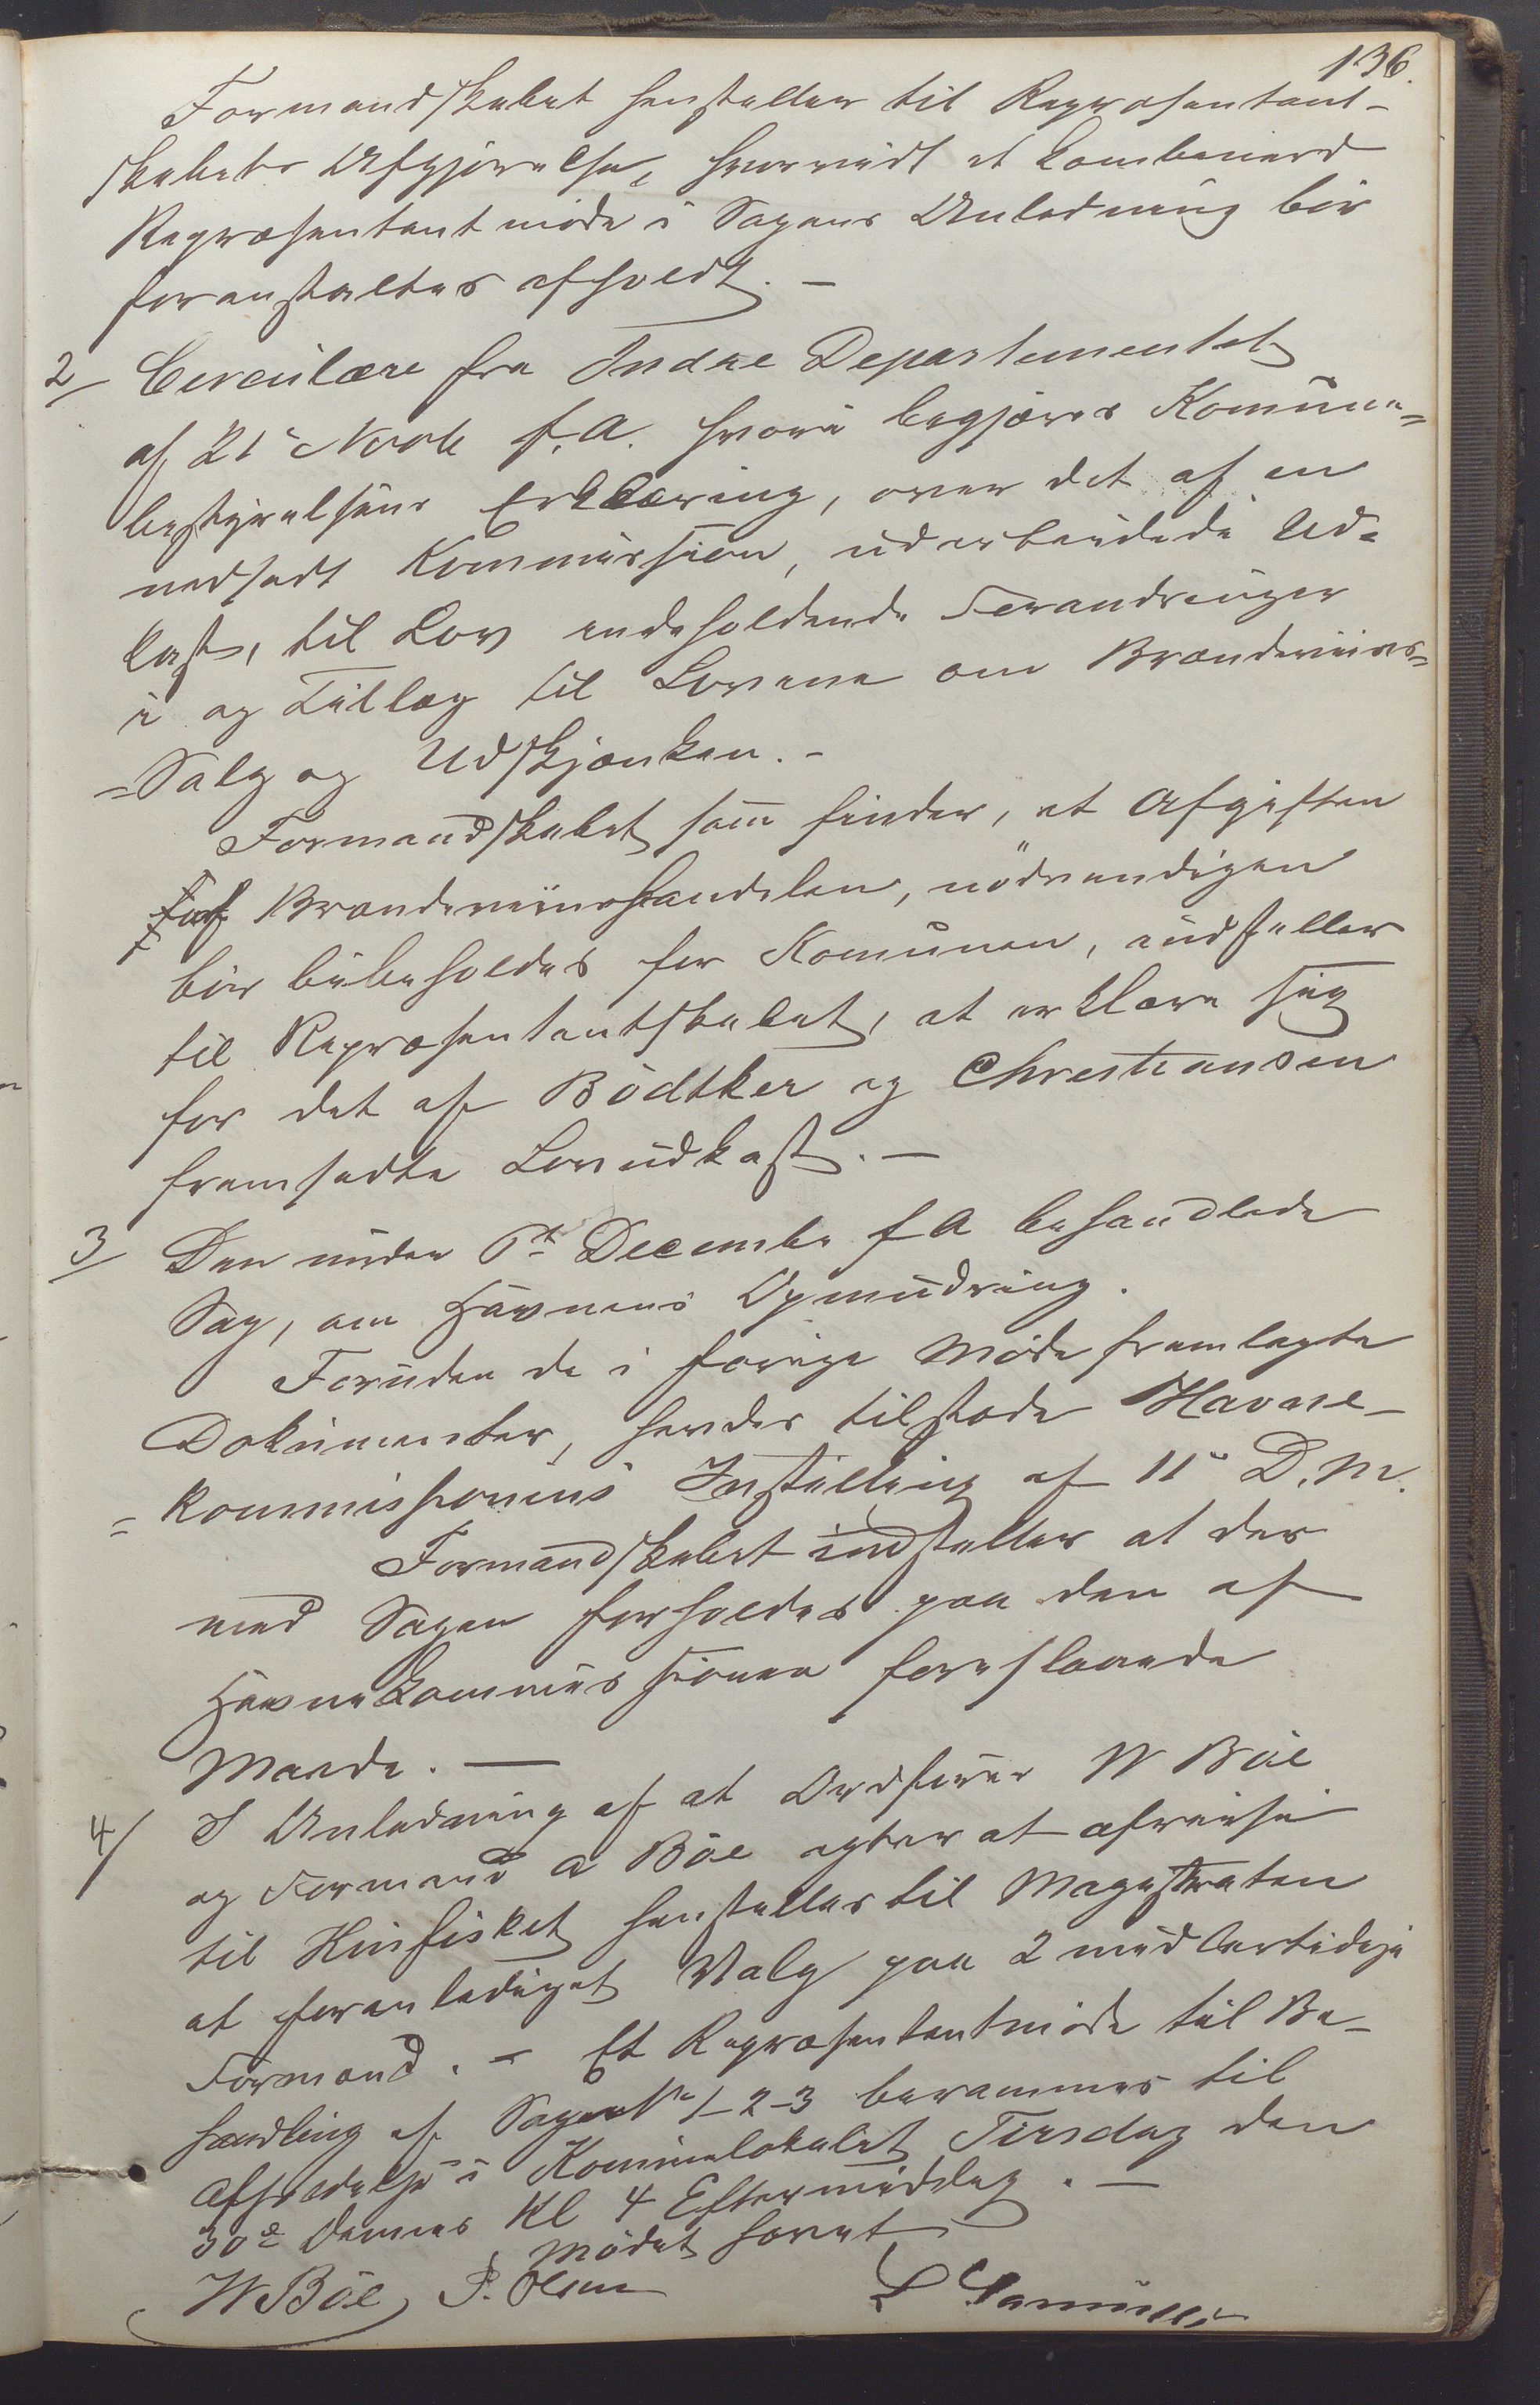 136.
Formandskabet henstiller til Repræsentant-
skabets Afgjørelse, hvorvidt et kombinerd
Repræsentantmøde i Sagens Anledning bør
foranstaltes afholdt. -
2/ Circulære fra Indre Departementet
af 21de Novbr f. A. hvori begjæres Komune-
bestyrelsens Erklæring, over det af en
nedsadt Kommission, udarbeidede Ud-
kast, til Lov indeholdende Forandringer
i og Tillæg til Lovene om Brændeviins-
=Salg og Udskjænken. -
Formandskabet som finder, at Afgiften
af Brændeviinshandelen, nødvendigen
bør bibeholdes for Komunen, indstiller
til Repræsentantskabet, at erklære sig
for det af Bödtker og Christiansen
fremsadte Lovudkast. -
3/ Den under 6te Decembr f A behandlede
Sag, om Havnens Opmudring.
Foruden de i forrige Møde fremlagte
Dokumenter, havdes tilstede Havne-
=kommissionens Instilling af 11te D. M.
Formandskabet indstiller at der
med Sagen forholdes paa den af
Havnekommissionen foreslaaede
Maade. -
4/ I Anledning af at Ordfører W Böe
og Formand A Böe agter at afreise
til Kinfisket henstilles til Magistraten
at foranlediget Valg paa 2 midlertidige
Formænd. - Et Repræsentantmøde til Be-
handling af Sagerne No 1-2-3 berammes til
Afholdelse i Komunelokalet Tirsdag den
30te dennes Kl 4 Eftermiddag. -
Mødet hævet
W Böe P. Olsen L